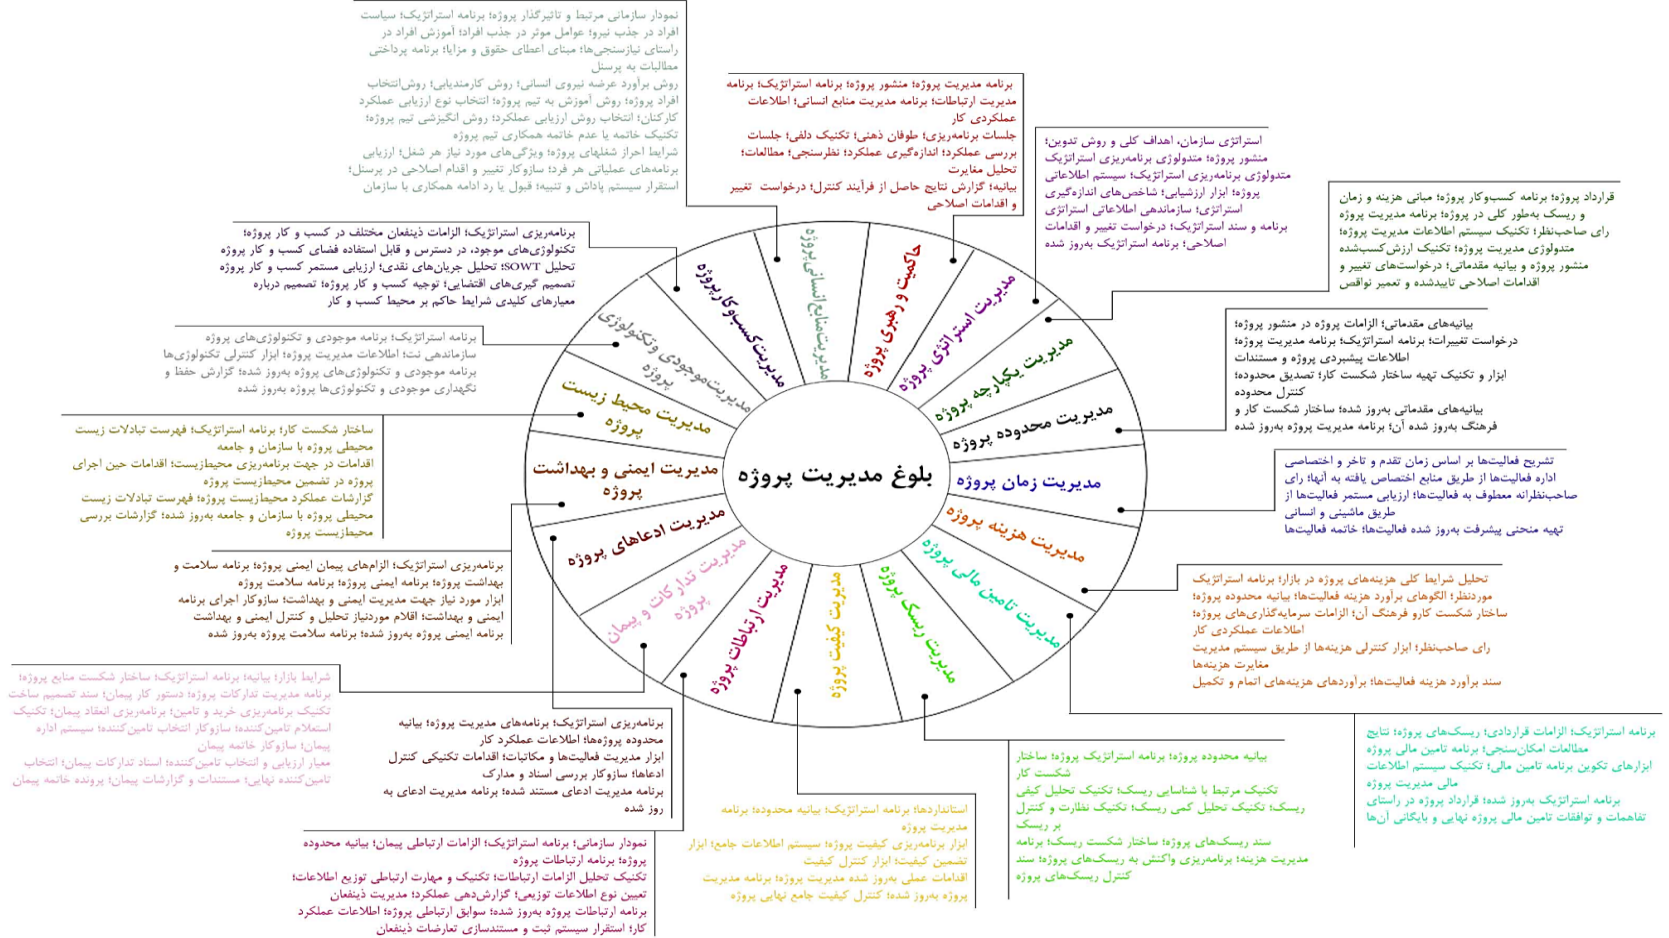 نمودار سازمانی مرتبط و تاثیرگذار پروژه؛ برنامه استراتژیک؛ سیاست
افراد در جذب نیرو؛ عوامل موثر در جذب افراد؛ آموزش افراد در
راستای نیازسنجی‌ها؛ مبنای اعطای حقوق و مزایا؛ برنامه پرداختی
مطالبات به پرسنل
روش برآورد عرضه نیروی انسانی؛ روش کارمندیابی؛ روش‌انتخاب
افراد پروژه؛ روش آموزش به تیم پروژه؛ انتخاب نوع ارزیابی عملکرد
کارکنان؛ انتخاب روش ارزیابی عملکرد؛ روش انگیزشی تیم پروژه؛
تکنیک خاتمه یا عدم خاتمه همکاری تیم پروژه
شرایط احراز شغلهای پروژه؛ ویژگی‌های مورد نیاز هر شغل؛ ارزیابی
برنامه‌های عملیاتی هر فرد؛ سازوکار تغییر و اقدام اصلاحی در پرسنل؛
استقرار سیستم پاداش و تنبیه؛ قبول یا رد ادامه همکاری با سازمان
برنامه مدیریت پروژه؛ منشور پروژه؛ برنامه استراتژیک؛ برنامه
مدیریت ارتباطات؛ برنامه مدیریت منابع انسانی؛ اطلاعات
عملکردی کار
جلسات برنامه‌ریزی؛ طوفان ذهنی؛ تکنیک دلفی؛ جلسات
بررسی عملکرد؛ اندازه‌گیری عملکرد؛ نظرسنجی؛ مطالعات؛
تحلیل مغایرت
بیانیه؛ گزارش نتایج حاصل از فرآیند کنترل؛ درخواست تغییر
و اقدامات اصلاحی
استراتژی سازمان، اهداف کلی و روش تدوین؛
منشور پروژه؛ متدولوژی برنامه‌ریزی استراتژیک
متدولوژی برنامه‌ریزی استراتژیک؛ سیستم اطلاعاتی
پروژه؛ ابزار ارزشیابی؛ شاخص‌های اندازه‌گیری
استراتژی؛ سازماندهی اطلاعاتی استراتژی
برنامه و سند استراتژیک؛ درخواست تغییر و اقدامات
اصلاحی؛ برنامه استراتژیک به‌روز شده
قرارداد پروژه؛ برنامه کسب‌وکار پروژه؛ مبانی هزینه و زمان
و ریسک به‌طور کلی در پروژه؛ برنامه مدیریت پروژه
رای صاحب‌نظر؛ تکنیک سیستم اطلاعات مدیریت پروژه؛
متدولوژی مدیریت پروژه؛ تکنیک ارزش‌کسب‌شده
منشور پروژه و بیانیه مقدماتی؛ درخواست‌های تغییر و
اقدامات اصلاحی تاییدشده و تعمیر نواقص
بیانیه‌های مقدماتی؛ الزامات پروژه در منشور پروژه؛
درخواست تغییرات؛ برنامه استراتژیک؛ برنامه مدیریت پروژه؛
اطلاعات پیشبردی پروژه و مستندات
ابزار و تکنیک تهیه ساختار شکست کار؛ تصدیق محدوده؛
کنترل محدوده
بیانیه‌های مقدماتی به‌روز شده؛ ساختار شکست کار و
فرهنگ به‌روز شده آن؛ برنامه مدیریت پروژه به‌روز شده
تشریح فعالیت‌ها بر اساس زمان تقدم و تاخر و اختصاصی
اداره فعالیت‌ها از طریق منابع اختصاص یافته به آنها؛ رای
صاحب‌نظرانه معطوف به فعالیت‌ها؛ ارزیابی مستمر فعالیت‌ها از
طریق ماشینی و انسانی
تهیه منحنی پیشرفت به‌روز شده فعالیت‌ها؛ خاتمه فعالیت‌ها
تحلیل شرایط کلی هزینه‌های پروژه در بازار؛ برنامه استراتژیک
موردنظر؛ الگوهای برآورد هزینه فعالیت‌ها؛ بیانیه محدوده پروژه؛
ساختار شکست کارو فرهنگ آن؛ الزامات سرمایه‌گذاری‌های پروژه؛
اطلاعات عملکردی کار
رای صاحب‌نظر؛ ابزار کنترلی هزینه‌ها از طریق سیستم مدیریت
مغایرت هزینه‌ها
سند برآورد هزینه فعالیت‌ها؛ برآوردهای هزینه‌های اتمام و تکمیل
برنامه استراتژیک؛ الزامات قراردادی؛ ریسک‌های پروژه؛ نتایج
مطالعات امکان‌سنجی؛ برنامه تامین مالی پروژه
ابزارهای تکوین برنامه تامین مالی؛ تکنیک سیستم اطلاعات
مالی مدیریت پروژه
برنامه استراتژیک به‌روز شده؛ قرارداد پروژه در راستای
تفاهمات و توافقات تامین مالی پروژه نهایی و بایگانی آن‌ها
بیانیه محدوده پروژه؛ برنامه استراتژیک پروژه؛ ساختار
شکست کار
تکنیک مرتبط با شناسایی ریسک؛ تکنیک تحلیل کیفی
ریسک؛ تکنیک تحلیل کمی ریسک؛ تکنیک نظارت و کنترل
بر ریسک
سند ریسک‌های پروژه؛ ساختار شکست ریسک؛ برنامه
مدیریت هزینه؛ برنامه‌ریزی واکنش به ریسک‌های پروژه؛ سند
کنترل ریسک‌های پروژه
استانداردها؛ برنامه استراتژیک؛ بیانیه محدوده؛ برنامه
مدیریت پروژه
ابزار برنامه‌ریزی کیفیت پروژه؛ سیستم اطلاعات جامع؛ ابزار
تضمین کیفیت؛ ابزار کنترل کیفیت
اقدامات عملی به‌روز شده مدیریت پروژه؛ برنامه مدیریت
پروژه به‌روز شده؛ کنترل کیفیت جامع نهایی پروژه
نمودار سازمانی؛ برنامه استراتژیک؛ الزامات ارتباطی پیمان؛ بیانیه محدوده
پروژه؛ برنامه ارتباطات پروژه
تکنیک تحلیل الزامات ارتباطات؛ تکنیک و مهارت ارتباطی توزیع اطلاعات؛
تعیین نوع اطلاعات توزیعی؛ گزارش‌دهی عملکرد؛ مدیریت ذینفعان
برنامه ارتباطات پروژه به‌روز شده؛ سوابق ارتباطی پروژه؛ اطلاعات عملکرد
کار؛ استقرار سیستم ثبت و مستندسازی تعارضات ذینفعان
برنامه‌ریزی استراتژیک؛ برنامه‌های مدیریت پروژه؛ بیانیه
محدوده پروژه‌ها؛ اطلاعات عملکرد کار
ابزار مدیریت فعالیت‌ها و مکاتبات؛ اقدامات تکنیکی کنترل
ادعاها؛ سازوکار بررسی اسناد و مدارک
برنامه مدیریت ادعای مستند شده؛ برنامه مدیریت ادعای به
روز شده
شرایط بازار؛ بیانیه؛ برنامه استراتژیک؛ ساختار شکست منابع پروژه؛
برنامه مدیریت تدارکات پروژه؛ دستور کار پیمان؛ سند تصمیم ساخت
تکنیک برنامه‌ریزی خرید و تامین؛ برنامه‌ریزی انعقاد پیمان؛ تکنیک
استعلام تامین‌کننده؛ سازوکار انتخاب تامین‌کننده؛ سیستم اداره
پیمان؛ سازوکار خاتمه پیمان
معیار ارزیابی و انتخاب تامین‌کننده؛ اسناد تدارکات پیمان؛ انتخاب
تامین‌کننده نهایی؛ مستندات و گزارشات پیمان؛ پرونده خاتمه پیمان
برنامه‌ریزی استراتژیک؛ الزام‌های پیمان ایمنی پروژه؛ برنامه سلامت و
بهداشت پروژه؛ برنامه ایمنی پروژه؛ برنامه سلامت پروژه
ابزار مورد نیاز جهت مدیریت ایمنی و بهداشت؛ سازوکار اجرای برنامه
ایمنی و بهداشت؛ اقلام موردنیاز تحلیل و کنترل ایمنی و بهداشت
برنامه ایمنی پروژه به‌روز شده؛ برنامه سلامت پروژه به‌روز شده
ساختار شکست کار؛ برنامه استراتژیک؛ فهرست تبادلات زیست
محیطی پروژه با سازمان و جامعه
اقدامات در جهت برنامه‌ریزی محیط‌زیست؛ اقدامات حین اجرای
پروژه در تضمین محیط‌زیست پروژه
گزارشات عملکرد محیط‌زیست پروژه؛ فهرست تبادلات زیست
محیطی پروژه با سازمان و جامعه به‌روز شده؛ گزارشات بررسی
محیط‌زیست پروژه
برنامه استراتژیک؛ برنامه موجودی و تکنولوژی‌های پروژه
سازماندهی نت؛ اطلاعات مدیریت پروژه؛ ابزار کنترلی تکنولوژی‌ها
برنامه موجودی و تکنولوژی‌های پروژه به‌روز شده؛ گزارش حفظ و
نگهداری موجودی و تکنولوژی‌ها پروژه به‌روز شده
برنامه‌ریزی استراتژیک؛ الزامات ذینفعان مختلف در کسب و کار پروژه؛
تکنولوژی‌های موجود، در دسترس و قابل استفاده فضای کسب و کار پروژه
تحلیل SOWT؛ تحلیل جریان‌های نقدی؛ ارزیابی مستمر کسب و کار پروژه
تصمیم گیری‌های اقتضایی؛ توجیه کسب و کار پروژه؛ تصمیم درباره
معیارهای کلیدی شرایط حاکم بر محیط کسب و کار
حاکمیت و رهبری پروژه
مدیریت استراتژی پروژه
مدیریت یکپارچه پروژه
مدیریت محدوده پروژه
مدیریت زمان پروژه
مدیریت هزینه پروژه
مدیریت تامین مالی پروژه
مدیریت ریسک پروژه
مدیریت کیفیت پروژه
مدیریت ارتباطات پروژه
مدیریت تدارکات و پیمان
پروژه
مدیریت ادعاهای پروژه
مدیریت ایمنی و بهداشت
پروژه
مدیریت محیط زیست
پروژه
مدیریت موجودی و تکنولوژی
پروژه
مدیریت کسب و کار پروژه
مدیریت منابع انسانی پروژه
بلوغ مدیریت پروژه